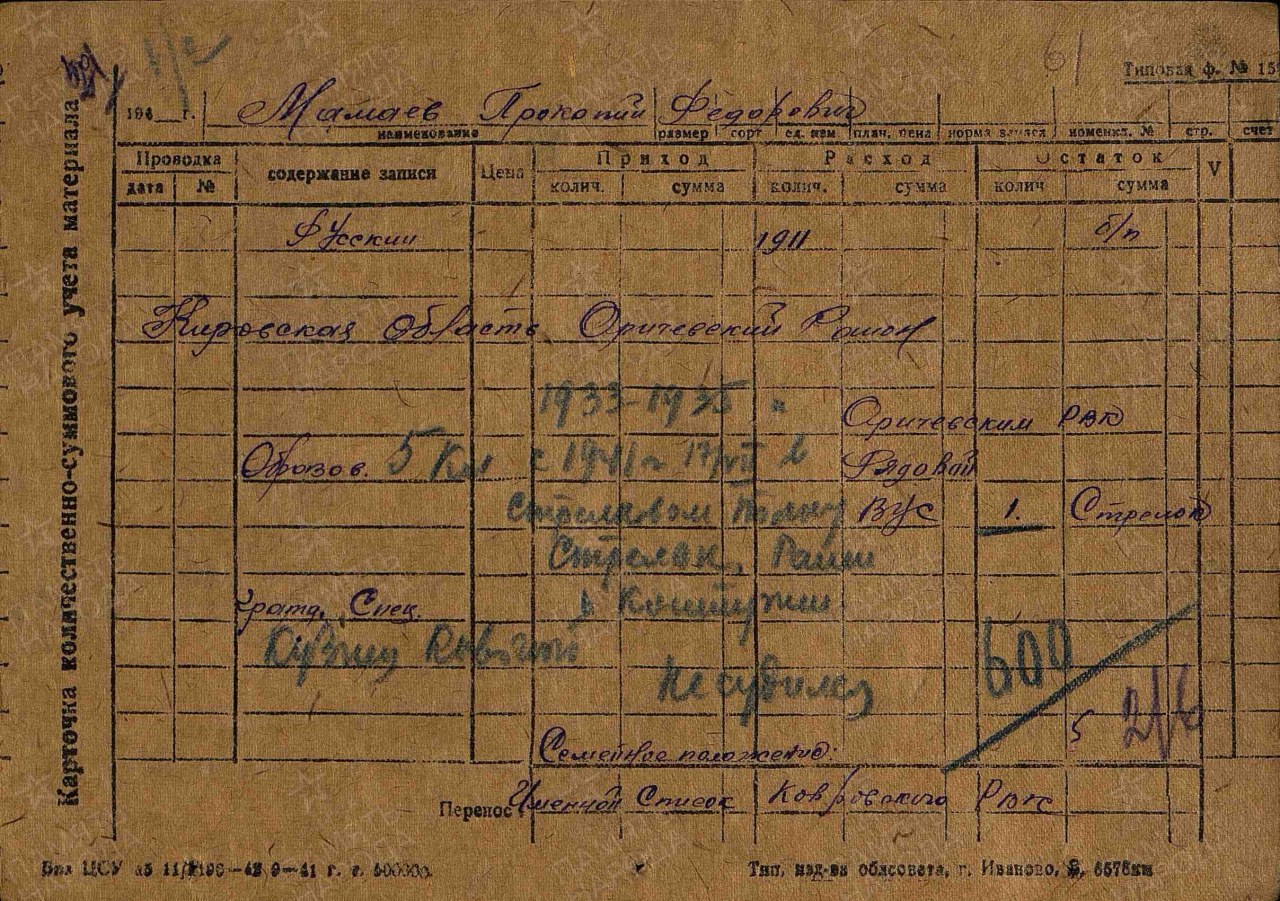 61
Типовая ф. № 15
194 г. Мамаев Прокопий Федорович
наименование размер сорт ед. изм. плач. цена норма запаса номенкл. № стр. счет
Карточка количественно-суммового учета материала
Проводка содержание записи Цена Приход Расход Остаток V
дата № колич. сумма колич. сумма колич сумма
Русский 1911 б/п
Кировская область Оричевский Район
1933-1935 Оричевским РВК
Образов. 5 Кл с 1941 г 17/VII в Рядовой
Стрелковом Полку ВУС 1. Стрелок
Стрелок,
Гражд. Спец. в
Кузнец
Не судился 600
5
Семейное положение:
Перенос: Именной Список Ковровского РВК
11/ 196—42 9—41 г.
Тип. изд-ва облсовета, г. Иваново, 6578